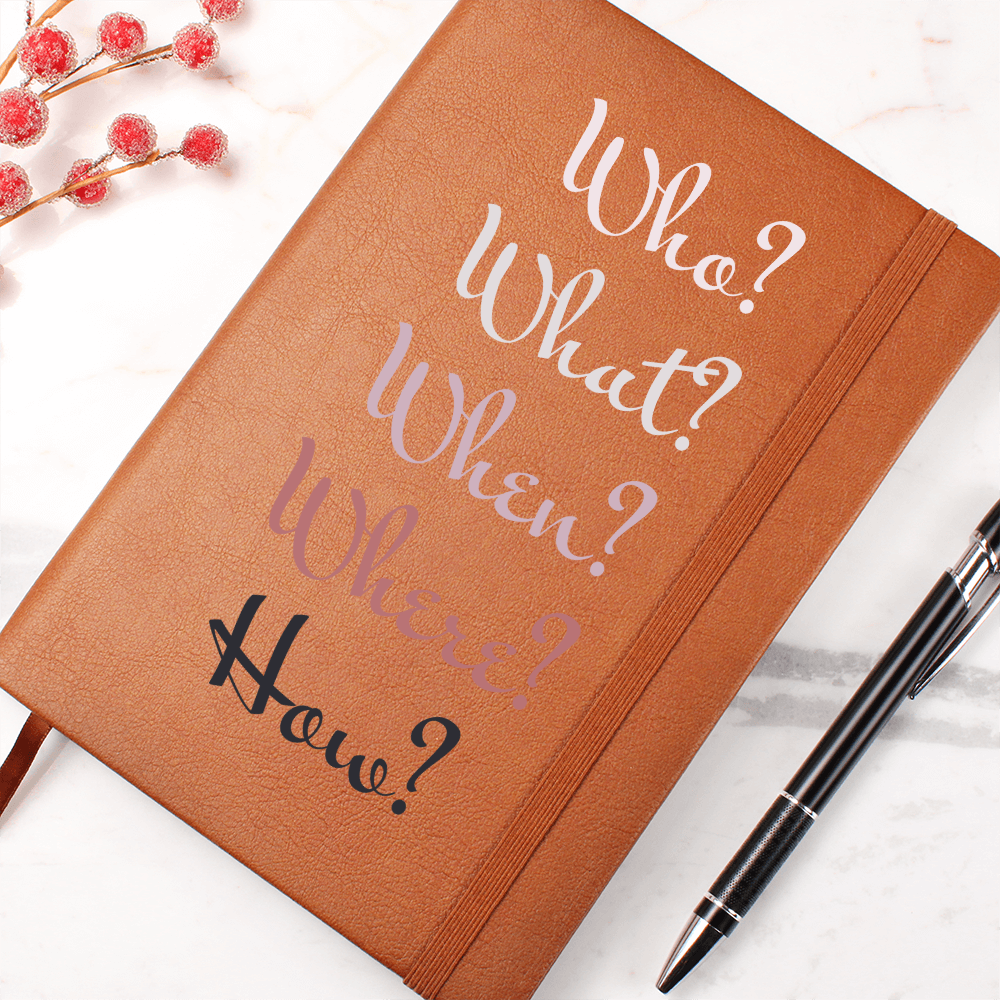 Who?
What?
When?
Where?
How?